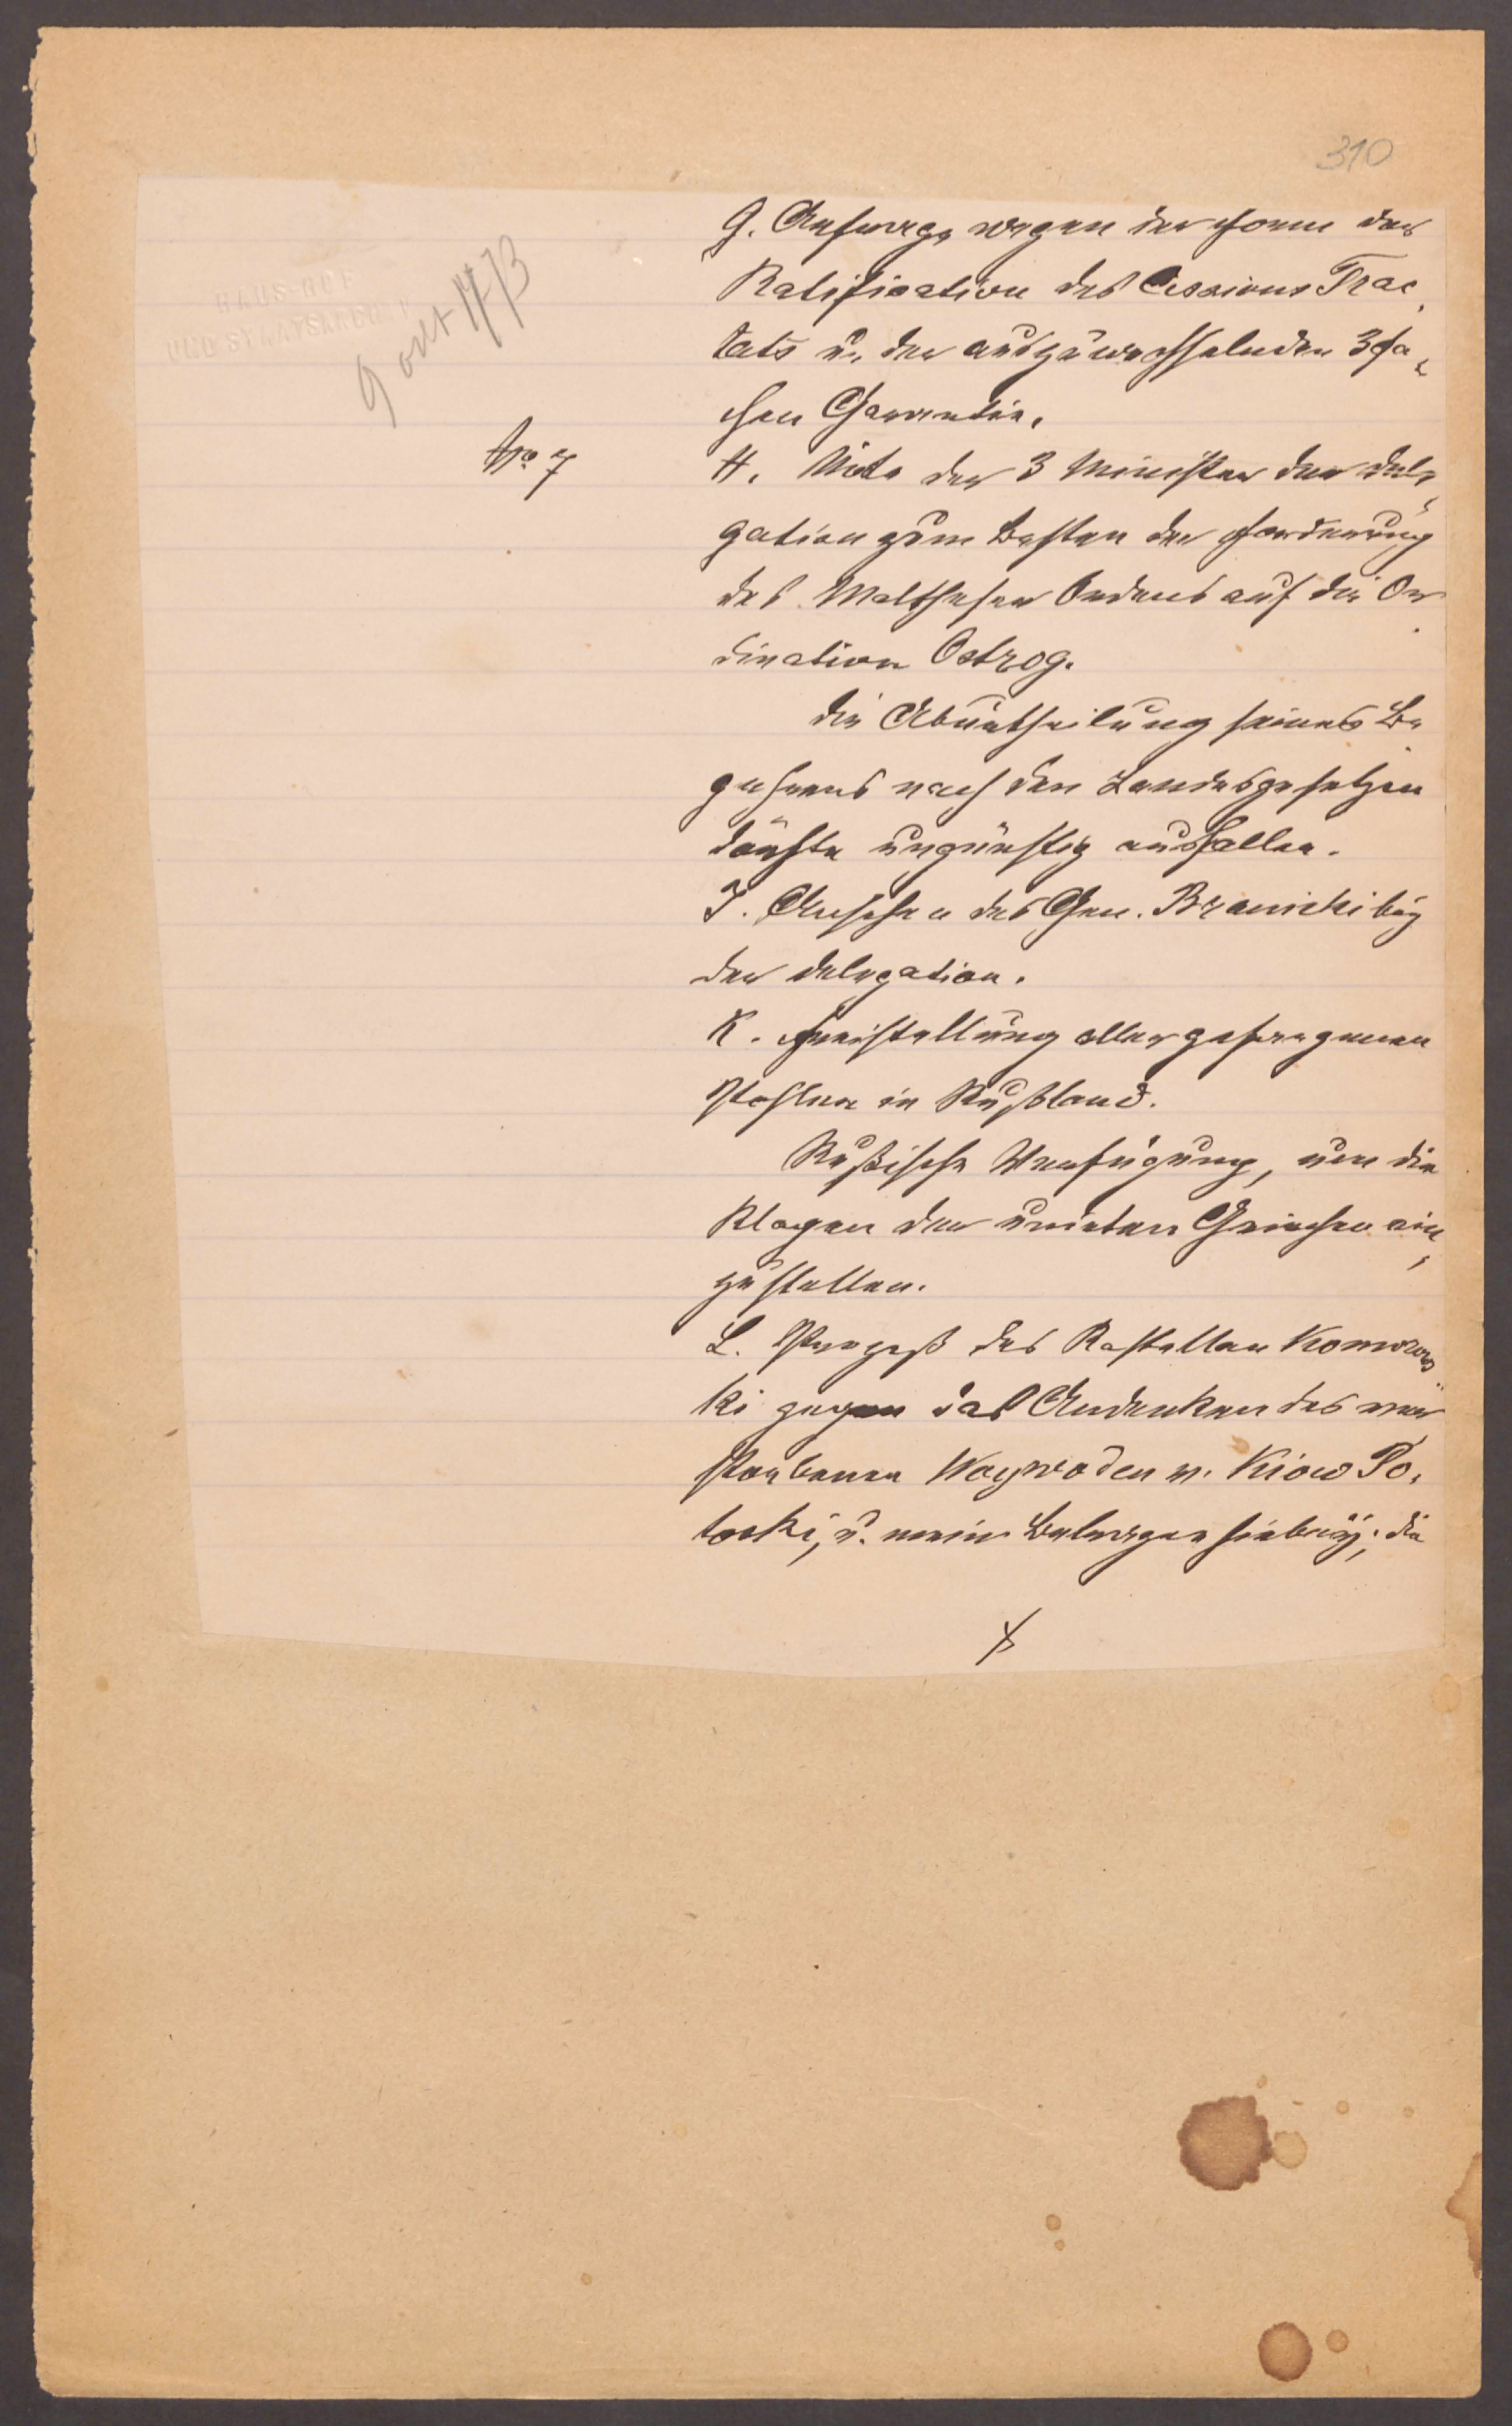 310
HAUS-HOF
UND STAATSARCHIV
9 oct 1773
G. Anfrage wegen der Form der
Ratification des Cessions Trac,
tats u. der auszuwechselnden 3fa,
chen Garantie.
Nro 7
H. Note der 3 Minister der Dele,
gation zum Besten der Forderung
des Maltheser Ordens auf die Or
dination Ostrog.
Die Aburtheilung seines Be
gehrens nach den Landesgesetzen
dürfte ungünstig ausfallen.
I. Ansehen des Gen. Branicki bey
der Delegation.
K. Freistellung aller gefangenen
Pohlen in Rußland.
Rußische Verfügung, um die
Klagen der unirten Griechen ein,
zustellen.
L. Prozeß des Kastellan Komorows
ki gegen das Andenken des ver
storbenen Woywoden v. Kiow Po,
tocki, u. mein Betragen hiebey; die